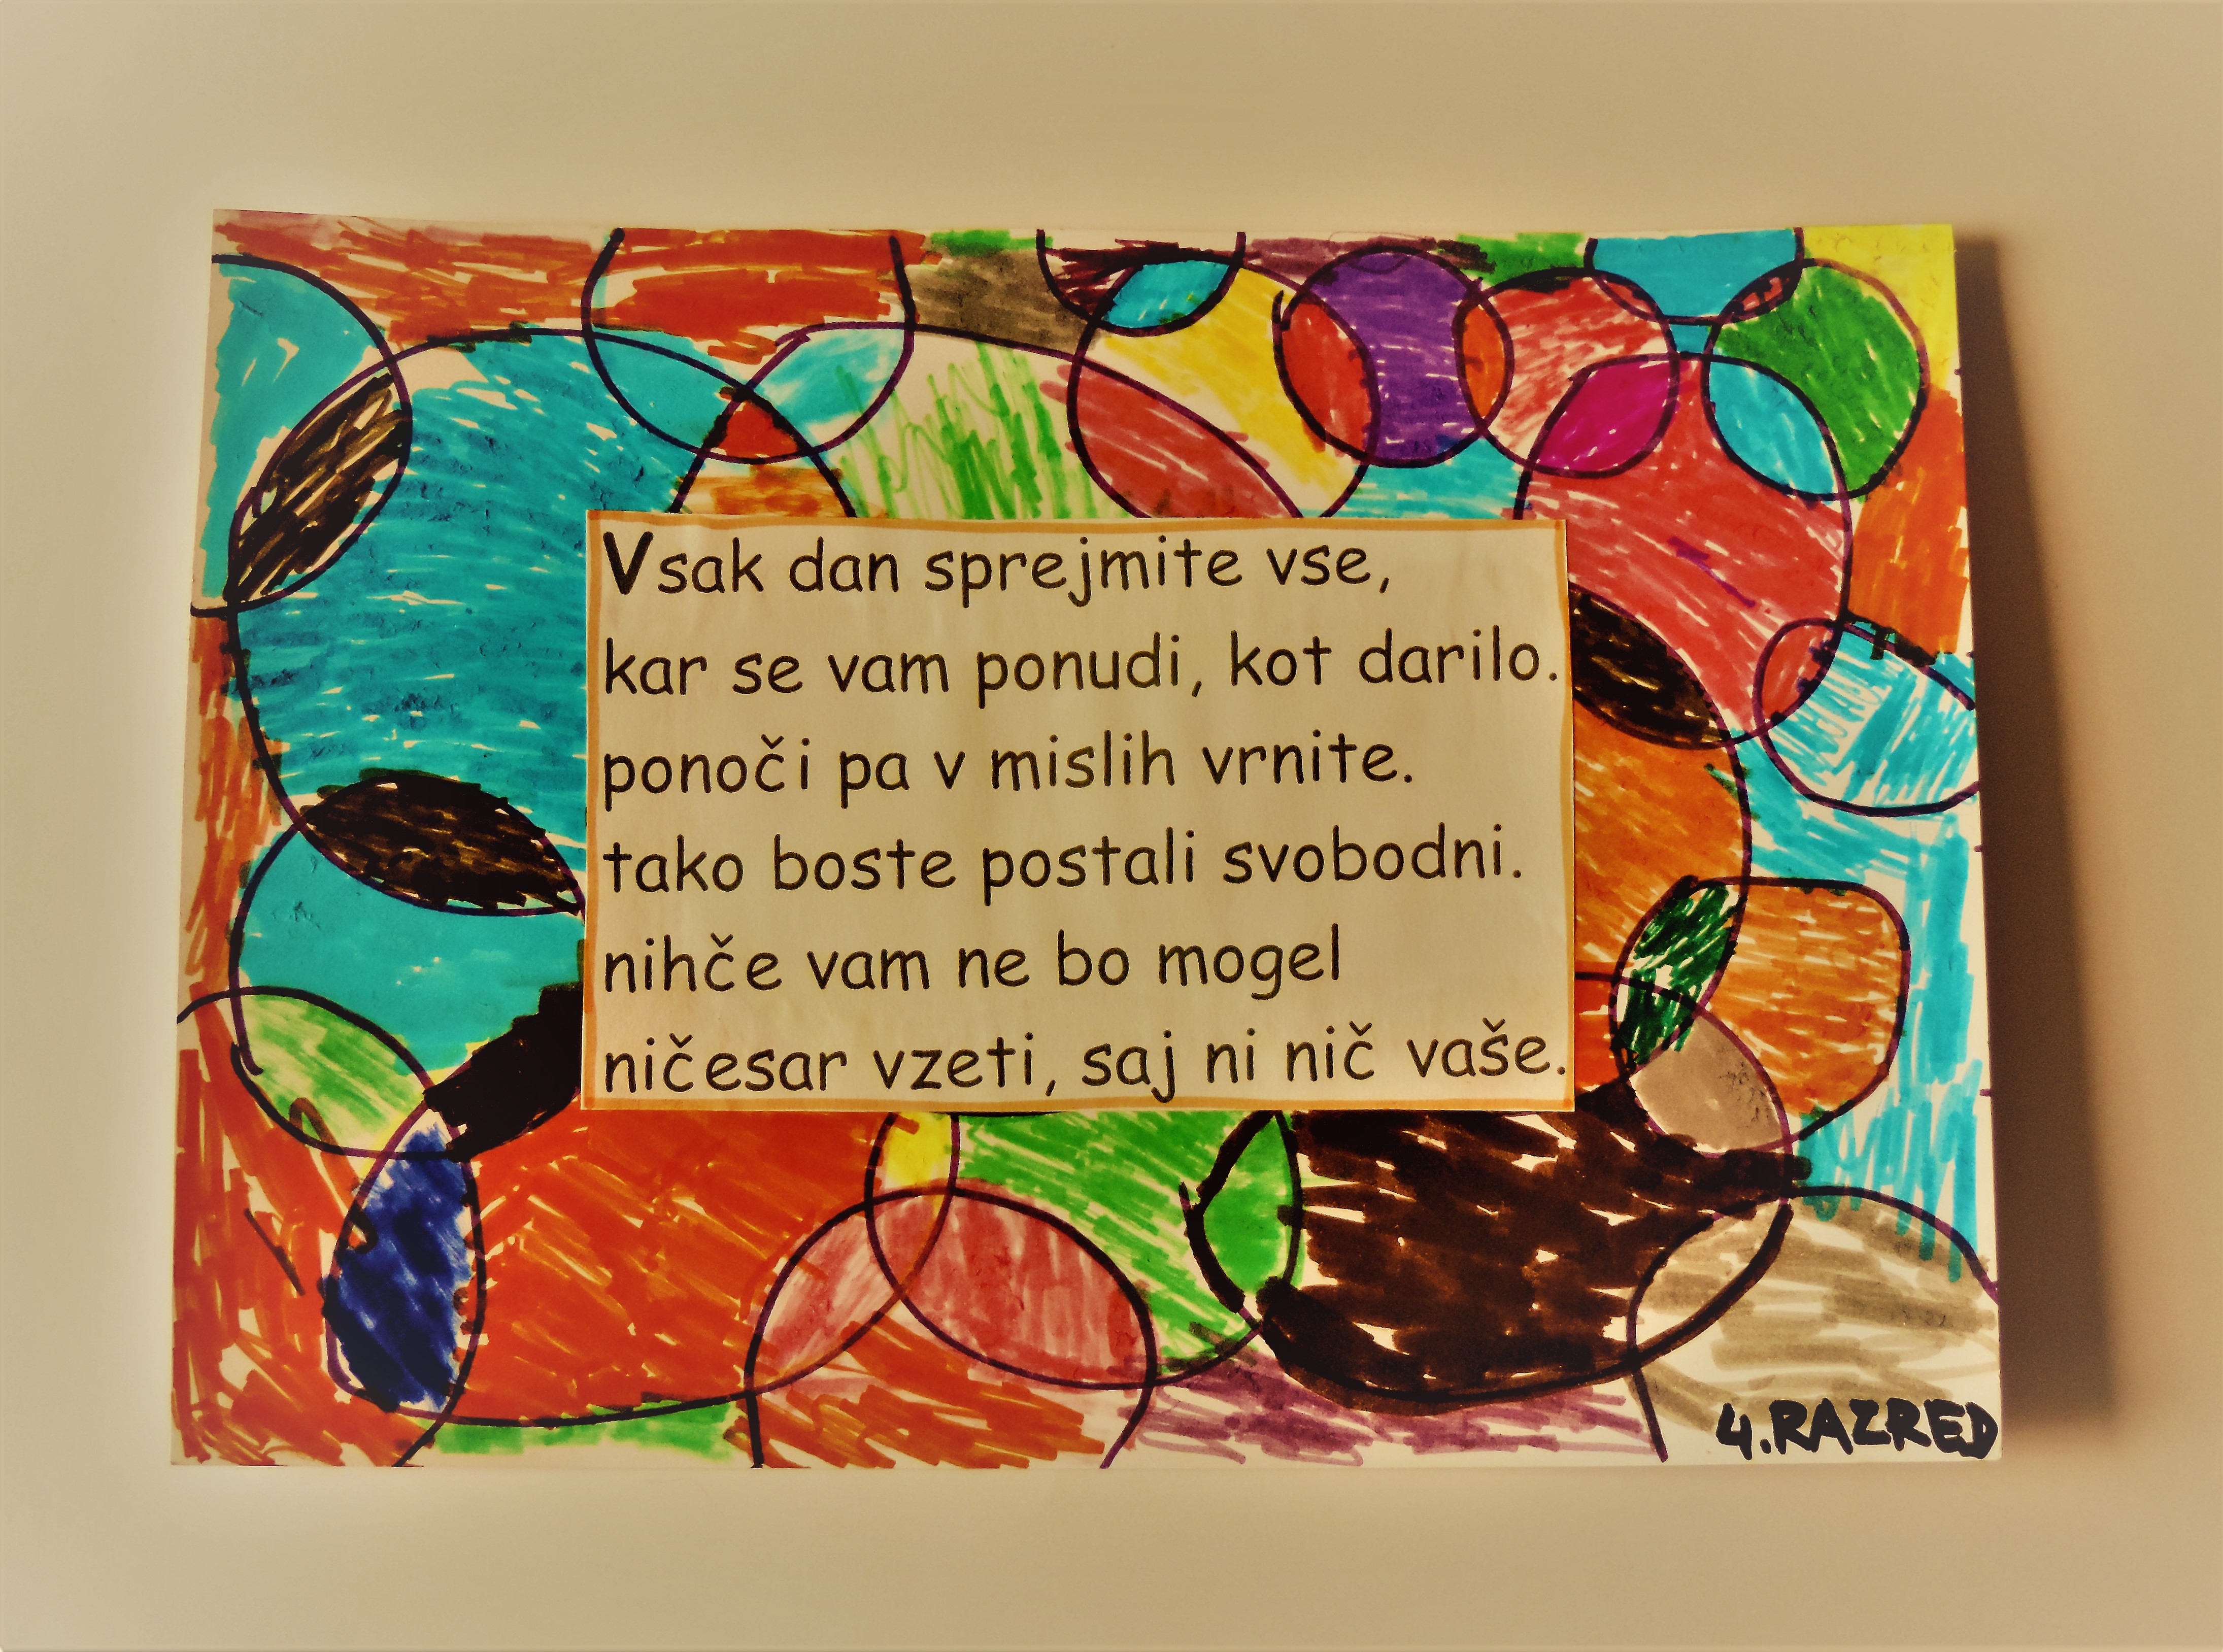 Vsak dan sprejmite vse,
kar se vam ponudi, kot darilo.
ponoči pa v mislih vrnite.
tako boste postali svobodni.
nihče vam ne bo mogel
ničesar vzeti, saj ni nič vaše.
4.RAZRED